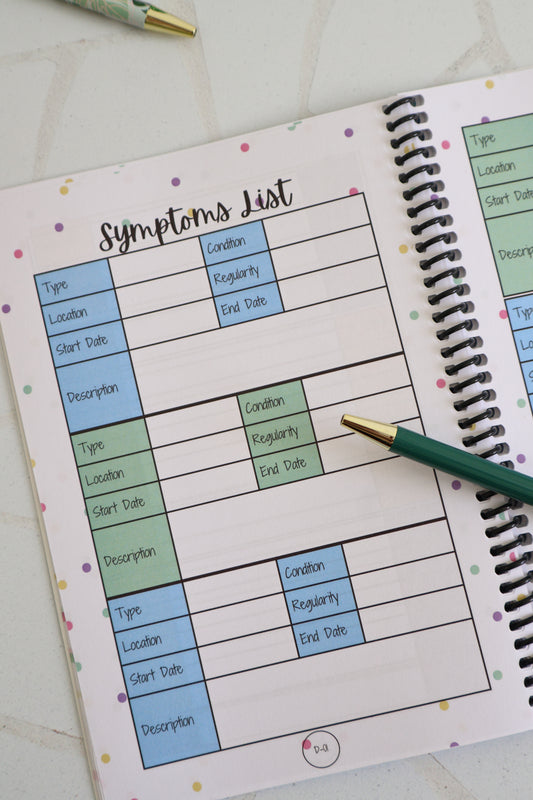 Symptoms List
Type Condition
Location Regularity
Start Date End Date
Description
Type Condition
Location Regularity
Start Date End Date
Description
Type Condition
Location Regularity
Start Date End Date
Description
Type
Location
Start Date
Descrip
Type
Lo
S